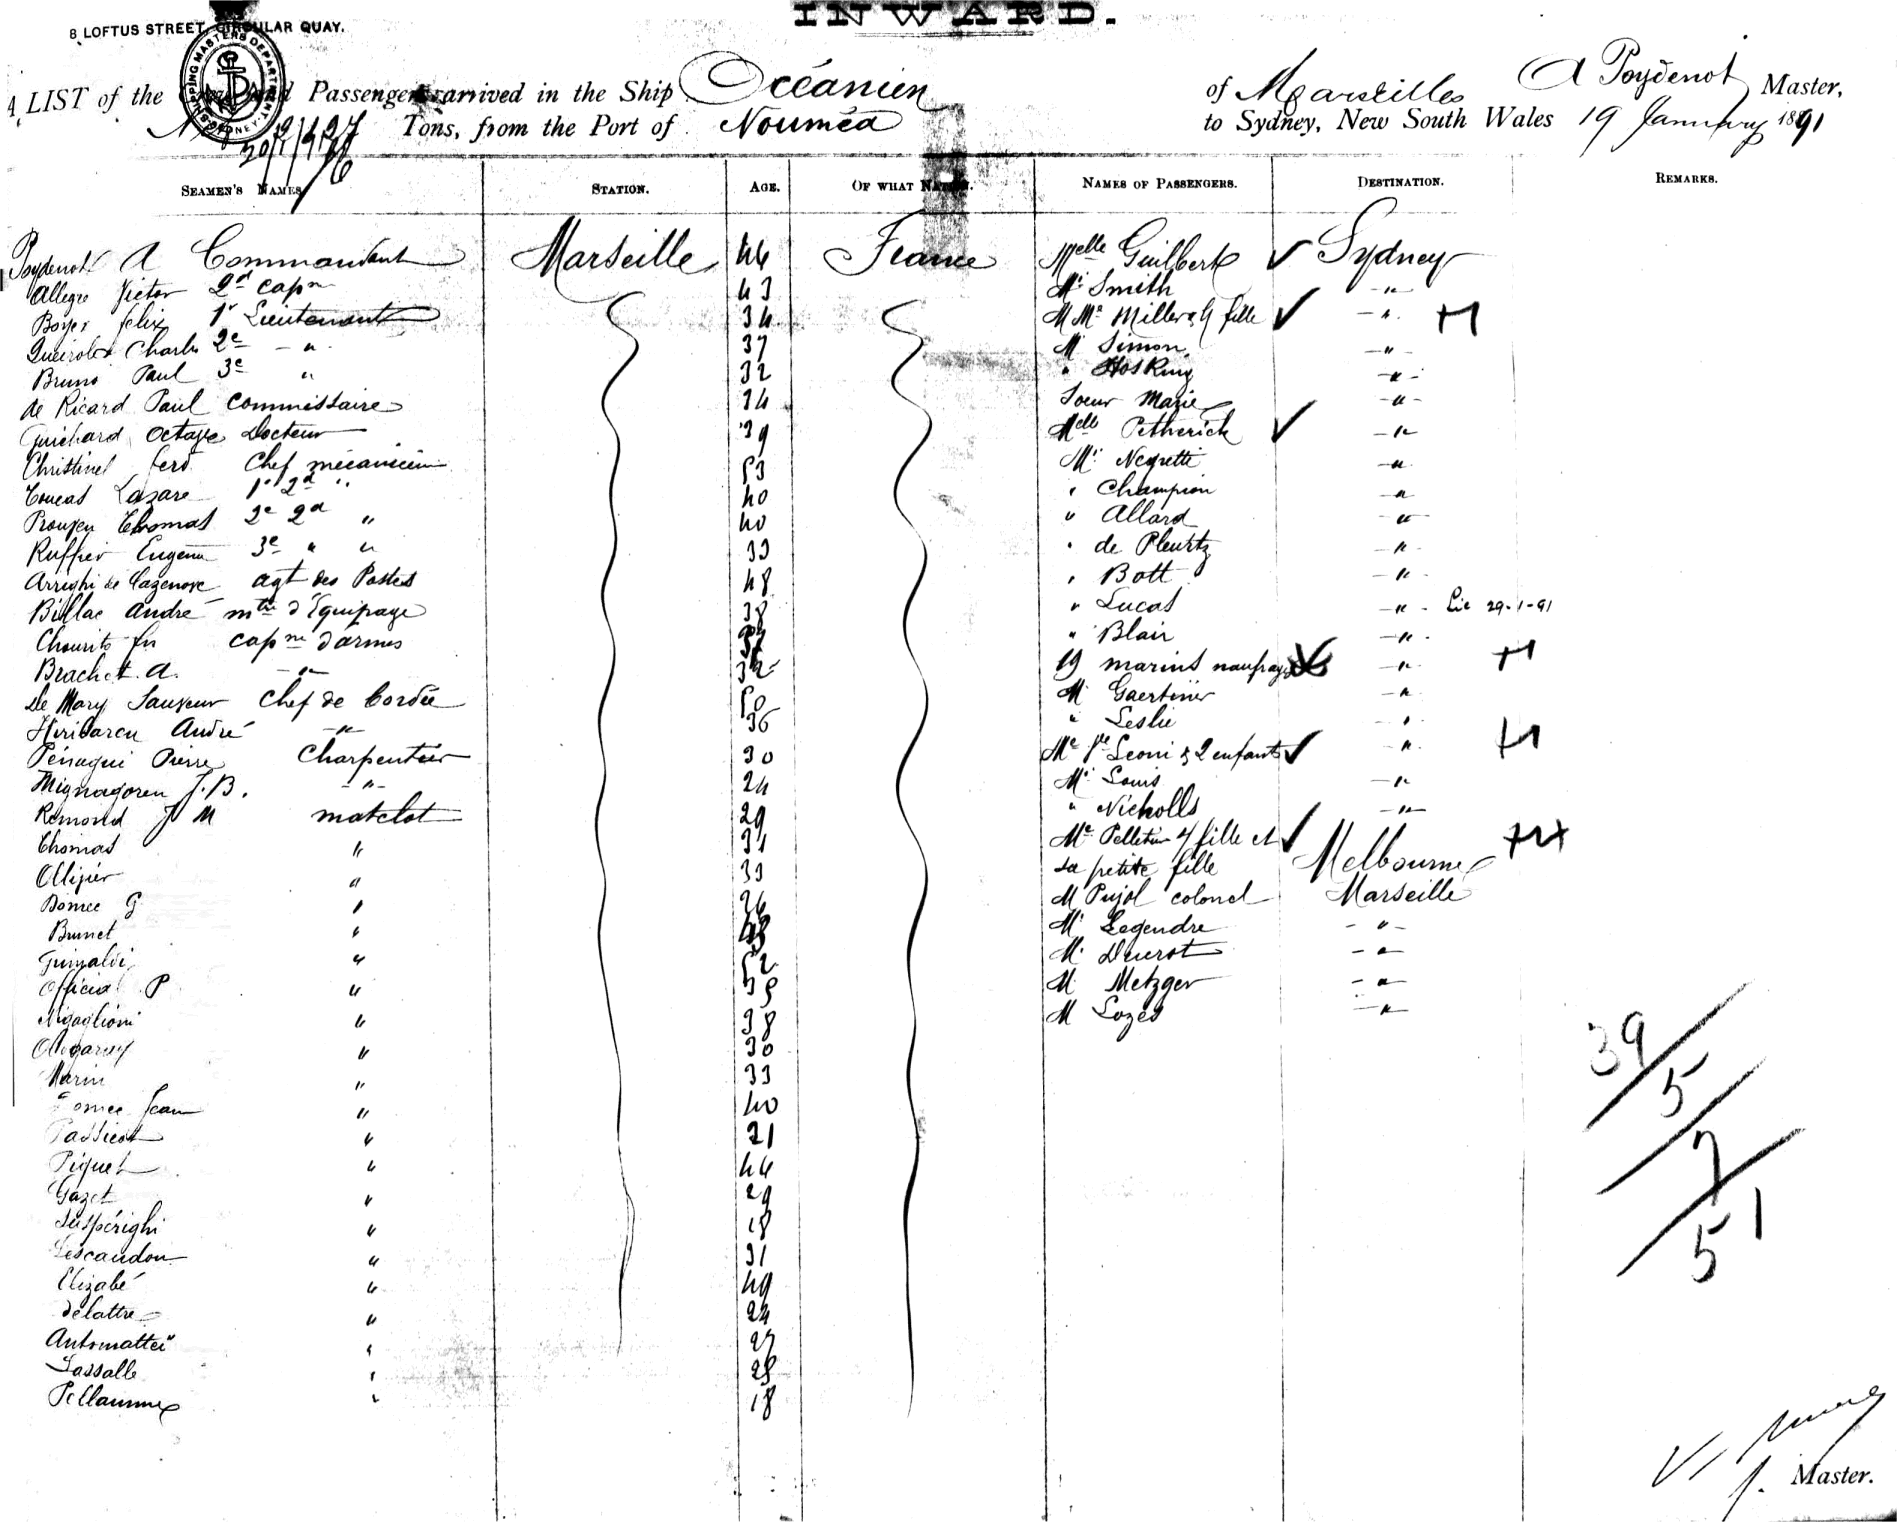 INWARD.
8 LOFTUS STREET, CIRCULAR QUAY.
SHIPPING MASTERS DEPARTMENT SYDNEY
A LIST of the Crew and Passengers arrived in the Ship Océanien of Marseilles A Poydenot Master,
Tons, from the Port of Nouméa to Sydney, New South Wales 19 January 1891
SEAMEN'S NAMES. STATION. AGE. OF WHAT NATION. NAMES OF PASSENGERS. DESTINATION. REMARKS.
Poydenot A Commandant Marseille 44 France Melle Guilbert ✓ Sydney
Allegre Victor 2d Capne 43 Mr Smith -"-
Boyer felix 1r Lieutenant 34 M Me Miller & 4 fille ✓ -"-
Charles 2e -"- 37 Mr Simon -"-
Bruno Paul 3e " 32 " Hosking -"-
de Ricard Paul Commissaire 34 Soeur Marie -"-
Guichard Octave Docteur 39 Melle Petherick ✓ -"-
Christinel ferd Chef mécanicien 53 Mr Negretti -"-
Coucas Lazare 1r 2d " 40 " Champion -"-
Thomas 2e 2d " 40 " Allard -"-
Ruffier Eugène 3e " " 33 " de Pleurtz -"-
Arrighi de Cazenove agt des Postes 48 " Bott -"-
Billac André mtre d'Equipage 38 " Lucas -"- 29-1-91
capne d'armes " Blair -"-
Brachet. A. -"- 32 19 marins naufragés -"-
De Mary Sauveur Chef de bordée 50 Mr Gaertiner -"-
Hiribaren André -"- 36 " Leslie "
Pénagui Pierre Charpentier 30 Me Vve Leoni & 2 enfants ✓ "
Mignagoren J.B. -"- 24 Mr Louis -"-
Remond J M matelot 29 " Nicholls -"-
Thomas " 34 Me Pelletier 4 fille et ✓
Ollivier " 33 sa petite fille Melbourne
Bonree G " 26 M Pujol colonel Marseille
Brunet " Mr Legendre - " -
Grimaldi " 52 M. Ducrot - " -
Official P " 35 M Metzger - " -
Nigaglioni " 38 M Lozes - " -
" 30
Marin " 33
Jean " 40
" 21
Piquet " 44
Gazet " 29
Suspérighi " 18
Lescaudon " 31
Elizabé " 49
delattre " 24
Antomattei " 27
Lassalle " 28
Pellaumes " 18
39
5
7
51
Master.